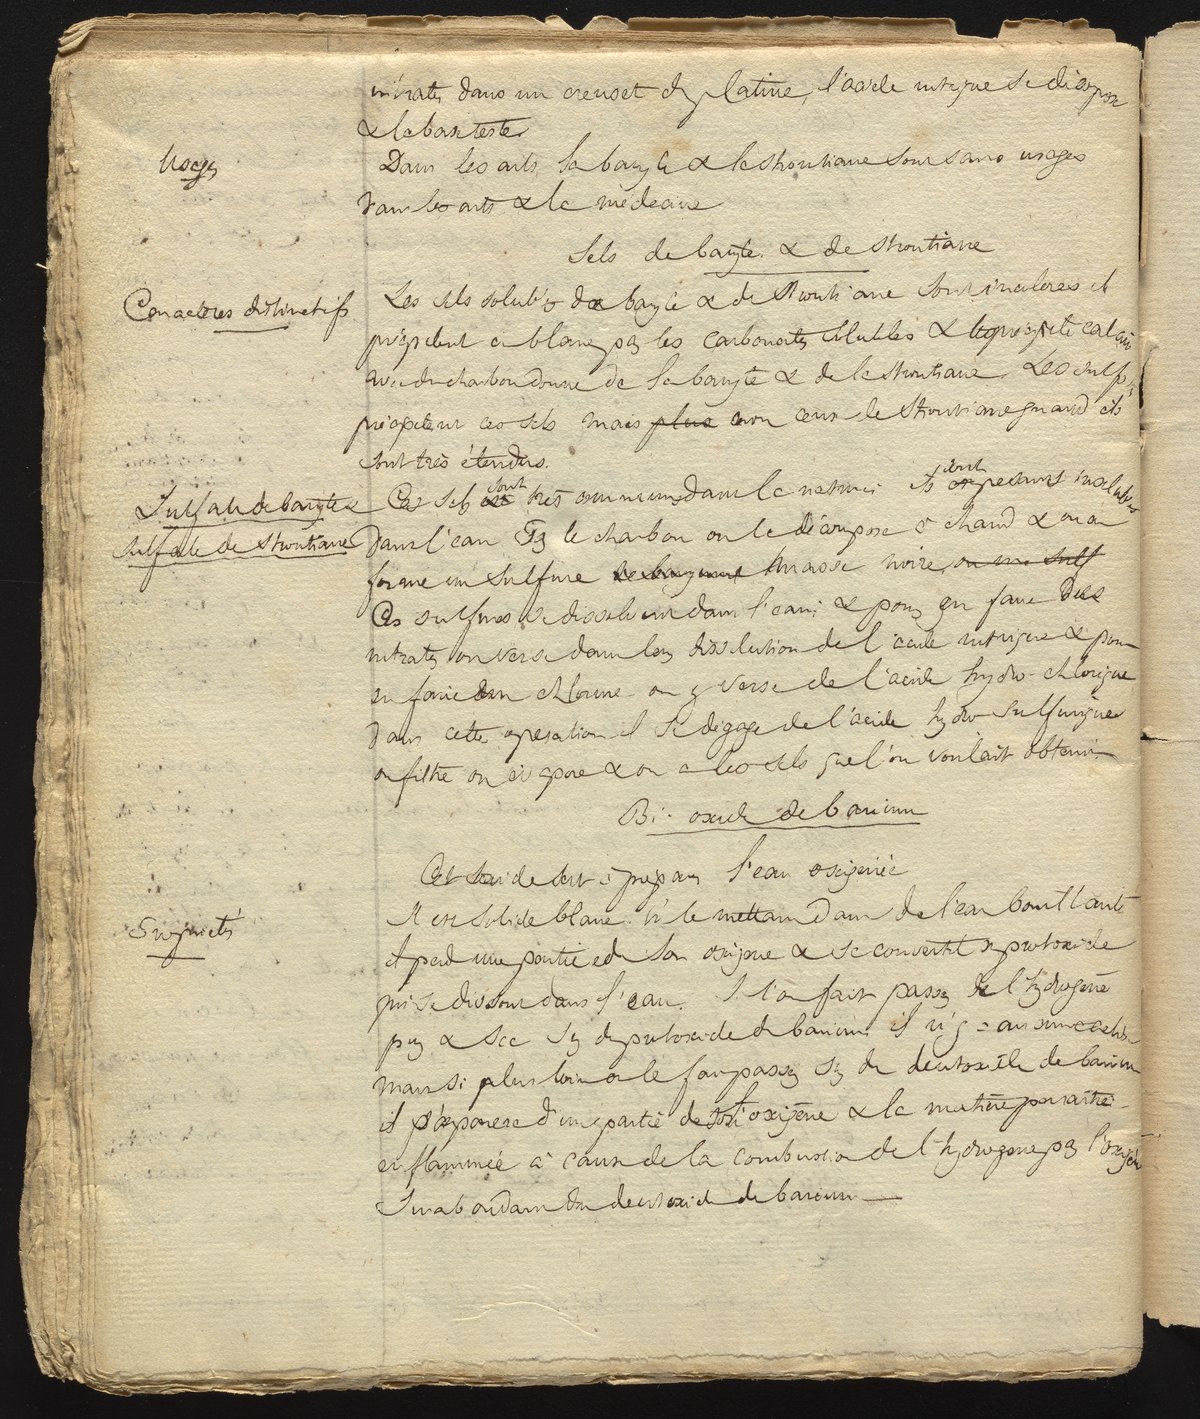 nitrates dans un creuset de platine, l'acide nitrique se décompose
& la base reste
Usages
Dans les arts, la baryte & la strontiane sont sans usages
dans les arts & la médecine
Sels de baryte & de strontiane
Caractères distinctifs
Les sels solubles de baryte & de strontiane sont incolores et
précipitent en blanc par les carbonates solubles & le précipité calciné
avec du charbon donne de la baryte & de la strontiane. Les sulf
précipitent ces sels mais plus non ceux de strontiane quand ils
sont très étendus.
Sulfate de baryte &
sulfate de strontiane
Ces sels sont très communs dans la nature ils sont pesants insolubles
dans l'eau Par le charbon on le décompose à chaud & on
forme un sulfure masse noire, ou un sulf
Ces sulfures se dissolvent dans l'eau & pour en faire des
nitrates on verse dans leur dissolution de l'acide nitrique & pour
en faire un chlorure on y verse de l'acide hydro-chlorique
Dans cette opération il se dégage de l'acide hydro sulfurique
on filtre on évapore & on a les sels que l'on voulait obtenir
Bi-oxide de barium
Cet oxide sert à préparer l'eau oxigénée
Propriétés
Il est solide blanc si le mettant dans de l'eau bouillante
il perd une partie de son oxigène & se convertit en protoxide
qui se dissout dans l'eau. Si l'on fait passer de l'hydrogène
pur & sec sur du protoxide de barium il n'y a aucune action
mais si plus loin on le fait passer sur du deutoxide de barium
il s'empare d'une partie de son oxigène & la matière paraître
enflammée à cause de la combustion de l'hydrogène par l'oxigène
surabondant du deutoxide de barium